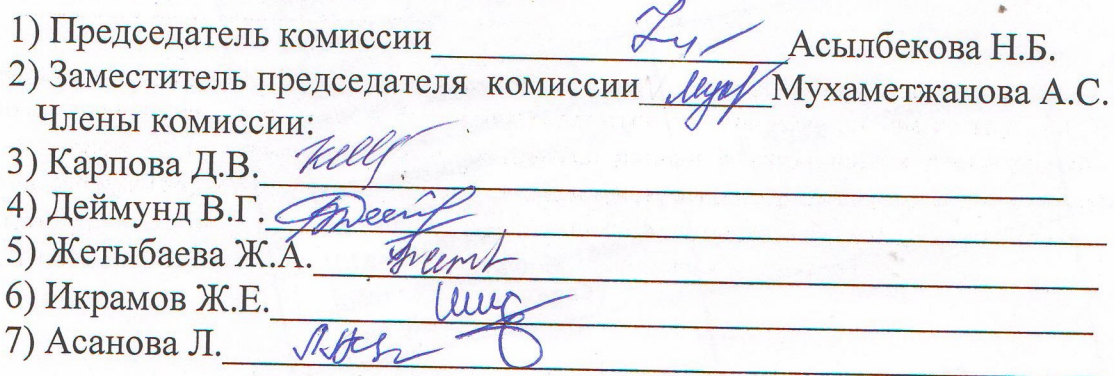 1) Председатель комиссии Асылбекова Н.Б.
2) Заместитель председателя комиссии Мухаметжанова А.С.
Члены комиссии:
3) Карпова Д.В.
4) Деймунд В.Г.
5) Жетыбаева Ж.А.
6) Икрамов Ж.Е.
7) Асанова Л.